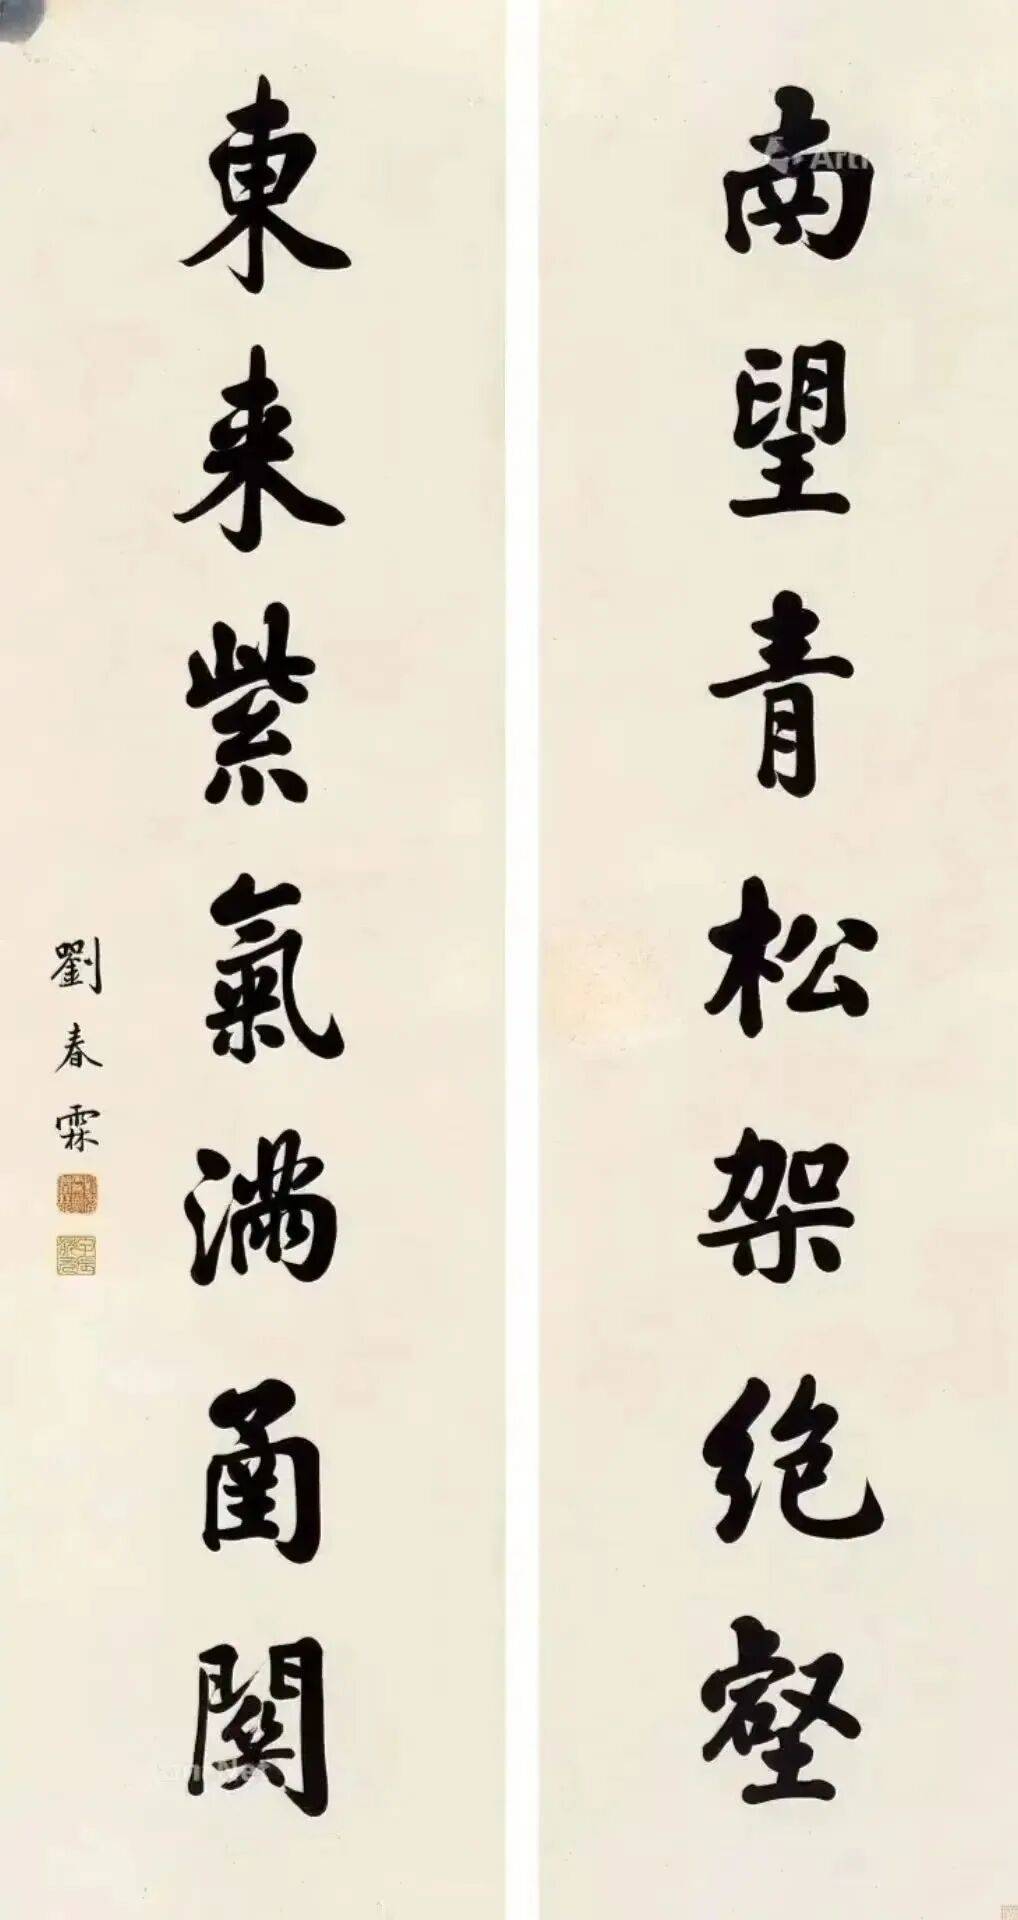 南望青松架絶壑
東来紫氣滿函關
劉春霖